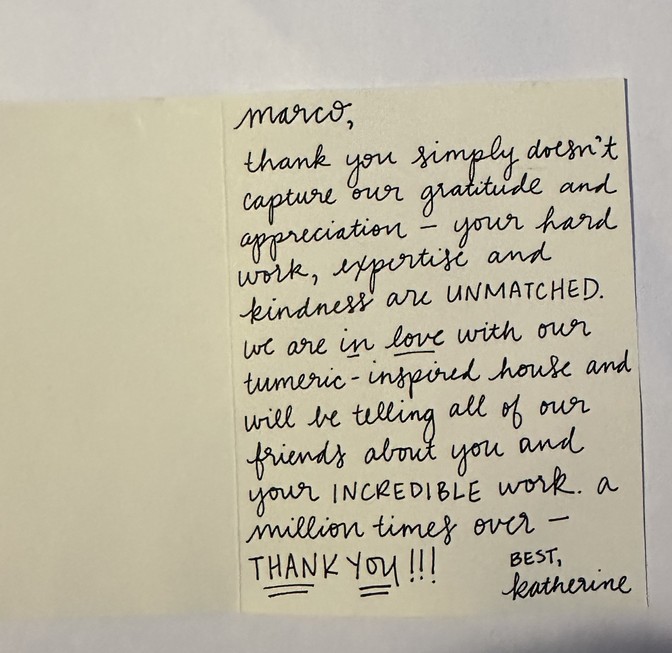 marco,
thank you simply doesn't
capture our gratitude and
appreciation – your hard
work, expertise and
kindness are UNMATCHED.
we are in love with our
tumeric-inspired house and
will be telling all of our
friends about you and
your INCREDIBLE work. a
million times over –
THANK YOU!!!
BEST,
katherine